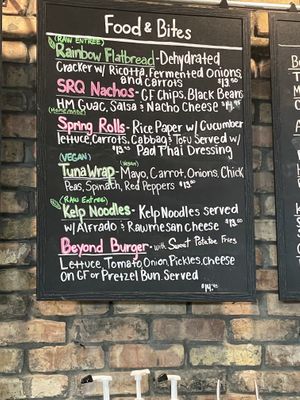 Food & Bites
(RAW ENTREE)
Rainbow Flatbread - Dehydrated
Cracker w/ Ricotta, Fermented Onions,
and Carrots $13.50
SRQ Nachos - GF Chips, Black Beans
HM Guac, Salsa & Nacho Cheese $14.95
(Homemade)
Spring Rolls - Rice Paper w/ Cucumber
lettuce, Carrots, Cabbag & Tofu Served w/
$13.95 Pad Thai Dressing
(VEGAN)
Tuna Wrap - (vegan) Mayo, Carrot, Onions, Chick
Peas, Spinach, Red Peppers $13.50
(RAW Entree)
Kelp Noodles - Kelp Noodles served
w/ Alfrado & Rawmesan cheese $13.00
Beyond Burger - with Sweet Potatoe Fries
Lettuce, Tomato, Onion, Pickles, cheese
On GF or Pretzel Bun. Served
$14.95